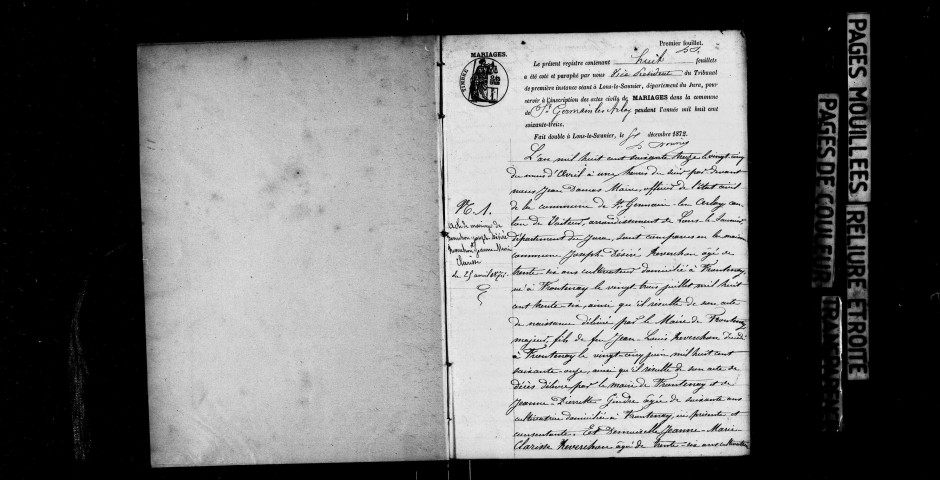 Premier feuillet.
MARIAGES.
TIMBRE
Le présent registre contenant huit feuillets
a été coté et paraphé par nous Vice Président du Tribunal
de première instance séant à Lons-le-Saunier, département du Jura, pour
servir à l'inscription des actes civils de MARIAGES dans la commune
de St Germain les Arlay pendant l'année mil huit cent
soixante-treize.
Fait double à Lons-le-Saunier, le décembre 1872.
L'an mil huit cent soixante treize le vingt cinq
du mois d'Avril à une heure du soir par devant
nous Jean James Maire, officier de l'état civil
de la commune de St Germain-les-Arlay can-
ton de Voiteur, arrondissement de Lons-le-Saunier
département du Jura, sont comparus en la maison
commune Joseph Désiré Reverchon âgé de
trente-six ans cultivateur domicilié à Frontenay,
né à Frontenay le vingt trois juillet mil huit
cent trente-six, ainsi qu'il résulte de son acte
de naissance délivré par le Maire de Frontenay
majeur, fils de feu Jean-Louis Reverchon décédé
à Frontenay le vingt-cinq juin, mil huit cent
soixante-onze, ainsi qu'il résulte de son acte de
décès délivré par le maire de Frontenay et de
Jeanne-Pierrette Gindre âgée de soixante ans
cultivatrice domiciliée à Frontenay, ici présente et
consentante. Et Demoiselle Jeanne-Marie
Clarisse Reverchon âgée de trente-six ans cultivatrice
N° 1.
Acte de mariage de
Reverchon joseph Désiré
Reverchon Jeanne Marie
Clarisse
du 25 avril 1873
PAGES MOUILLEES
RELIURE ETROITE
PAGES DE COULEUR
TRANSPARENCE